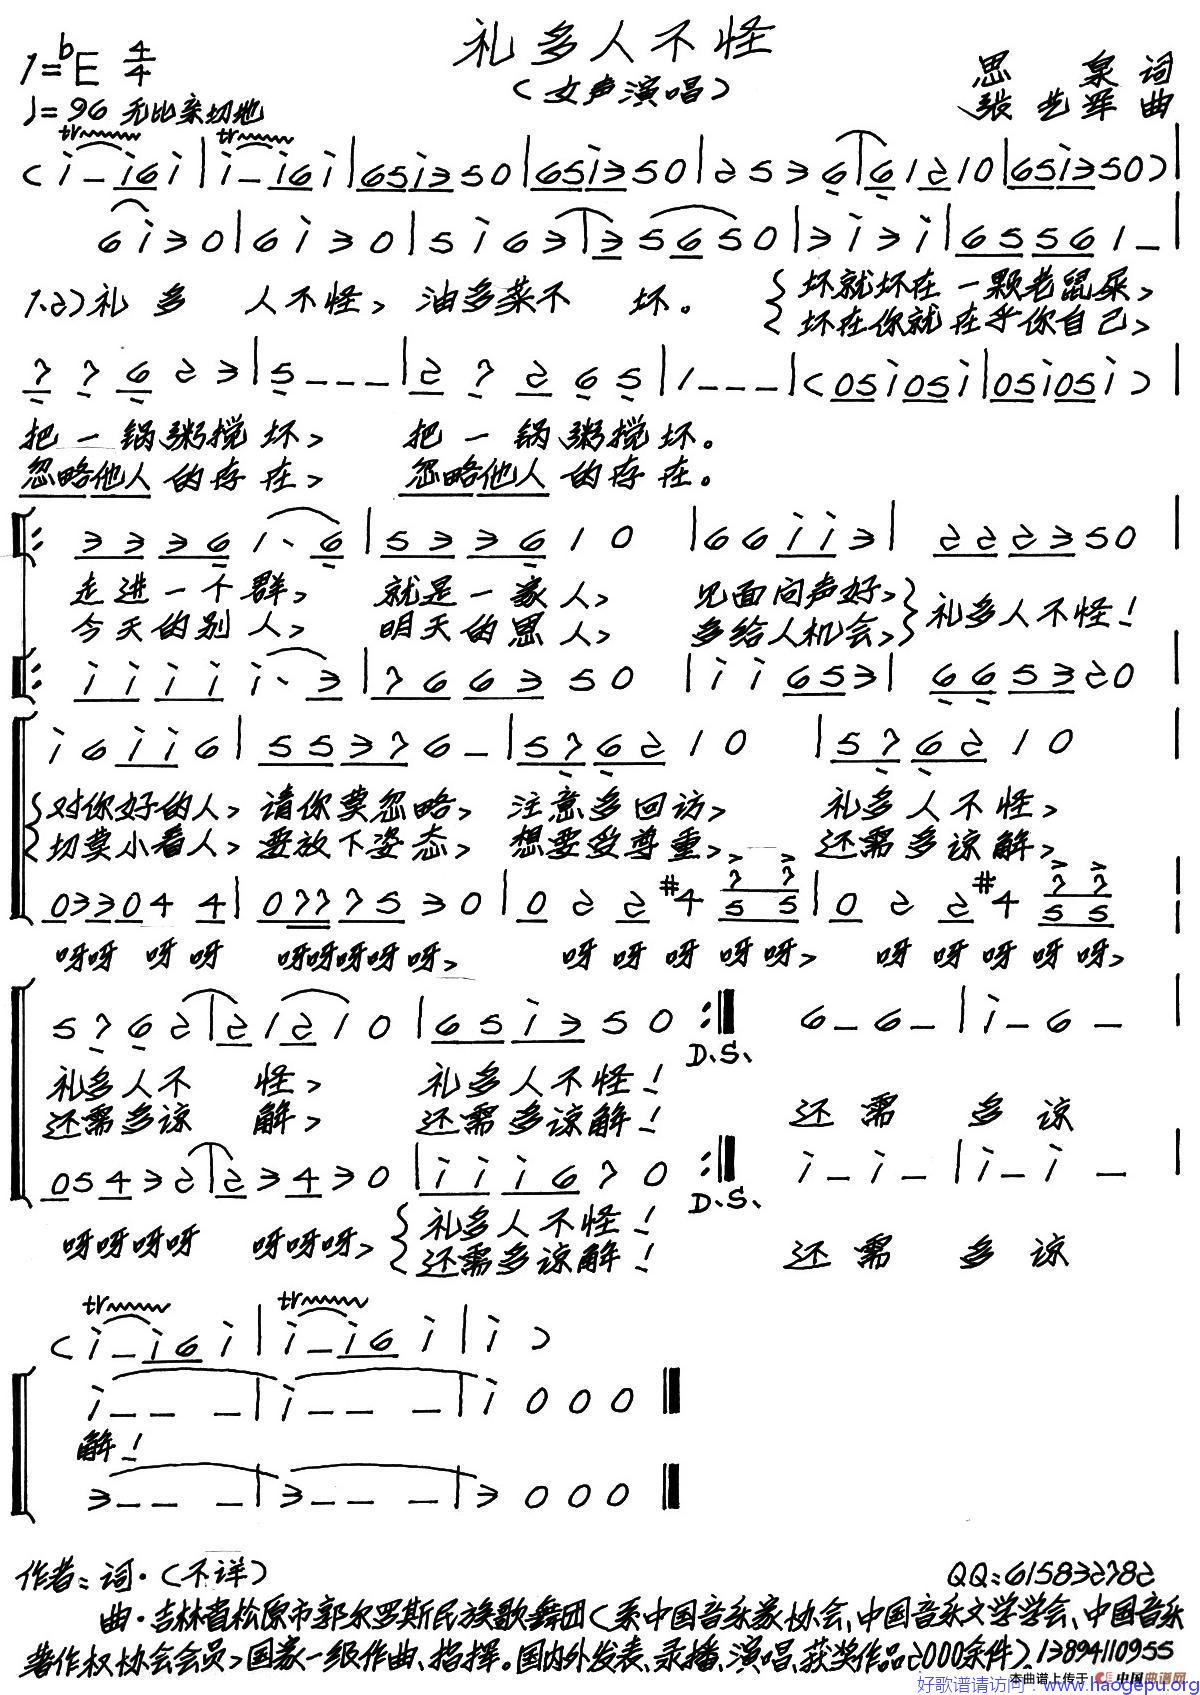 礼多人不怪
（女声演唱）
1=bE 4/4
♩=96 无比亲切地
思泉 词
张艺军 曲
tr tr
( i - i 6 i | i - i 6 i | 6 5 i 3 5 0 | 6 5 i 3 5 0 | 2 5 3 6 | 6 1 2 1 0 | 6 5 i 3 5 0 ) |
6 i 3 0 | 6 i 3 0 | 5 i 6 3 | 3 5 6 5 0 | 3 i 3 i | 6 5 5 6 1 - |
1.2) 礼多人不怪，油多菜不坏。坏就坏在一颗老鼠屎，
坏在你就在乎你自己，
7 7 6 2 3 | 5 - - - | 2 7 2 6 5 | 1 - - - | ( 0 5 i 0 5 i | 0 5 i 0 5 i ) |
把一锅粥搅坏，把一锅粥搅坏。
忽略他人的存在，忽略他人的存在。
3 3 3 6 1 · 6 | 5 3 3 6 1 0 | 6 6 i i 3 | 2 2 2 3 5 0 |
走进一个群，就是一家人，见面问声好，礼多人不怪！
今天的别人，明天的恩人，多给人机会，
i i i i i · 3 | 7 6 6 3 5 0 | i i 6 5 3 | 6 6 5 3 2 0 |
i 6 i i 6 | 5 5 3 7 6 - | 5 7 6 2 1 0 | 5 7 6 2 1 0 |
对你好的人，请你莫忽略，注意多回访，礼多人不怪，
切莫小看人，要放下姿态，想要致尊重，还需多谅解，
0 3 3 0 4 4 | 0 7 7 7 5 3 0 | 0 2 2 #4 7 7 | 0 2 2 #4 7 7 |
5 5 5 5
呀呀呀呀 呀呀呀呀呀，呀呀呀呀呀，呀呀呀呀呀，
5 7 6 2 | 2 1 2 1 0 | 6 5 i 3 5 0 :‖ 6 - 6 - | i - 6 - |
D.S.
礼多人不怪，礼多人不怪！
还需多谅解，还需多谅解！还需多谅
0 5 4 3 2 | 2 3 4 3 0 | i i i 6 7 0 :‖ i - i - | i - i - |
D.S.
呀呀呀呀 呀呀呀，礼多人不怪！
还需多谅解！还需多谅
tr tr
( i - i 6 i | i - i 6 i | i )
i - - - | i - - - | i 0 0 0 ‖
解！
3 - - - | 3 - - - | 3 0 0 0 ‖
作者：词·（不详）
QQ：615832782
曲·吉林省松原市郭尔罗斯民族歌舞团（系中国音乐家协会、中国音乐文学学会、中国音乐
著作权协会会员）国家一级作曲、指挥。国内外发表、录播、演唱、获奖作品2000余件）。13894110955
本曲谱上传于 中国曲谱网
好歌谱请访问：www.haogepu.org